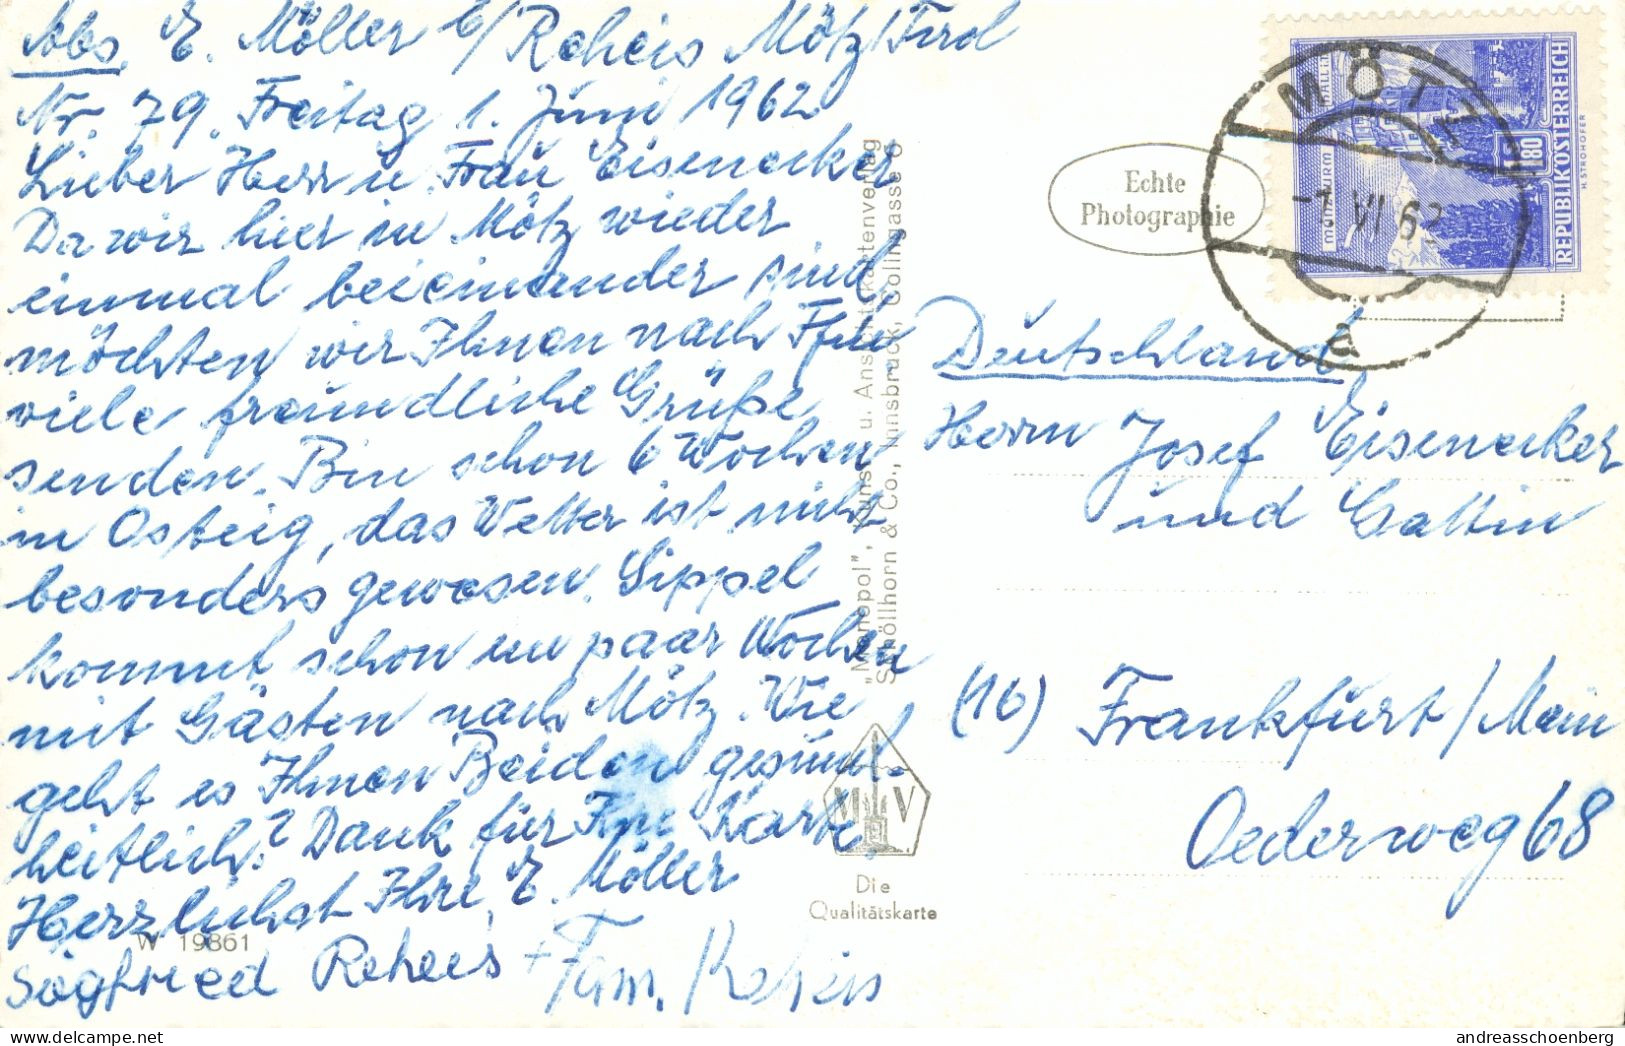 Abs. E. Möller b/Reheis Mötz/Tirol
Nr. 79. Freitag 1. Juni 1962
Lieber Herr u. Frau Eisenecker
Da wir hier in Mötz wieder
einmal beieinander sind,
möchten wir Ihnen nach Ffm
viele freundliche Grüße
senden. Bin schon 6 Wochen
in Osteig, das Wetter ist nicht
besonders gewesen. Sippel
kommt schon in paar Wochen
mit Gästen nach Mötz. Wie
geht es Ihnen Beiden gesund-
heitlich? Dank für Ihre Karte.
Herzlichst Ihre E. Möller
Siegfried Reheis + Fam. Reheis
W 19861
"Monopol", Kunst- u. Ansichtskartenverlag
Schöllhorn & Co., Innsbruck, Colingasse
M V
Die
Qualitätskarte
Echte
Photographie
MÖTZ
-1. VI 62
a
MÜNZTURM HALL i.T.
1.80
REPUBLIK ÖSTERREICH
H. STROHOFER
Deutschland
Herrn Josef Eisenecker
und Gattin
(16) Frankfurt/Main
Oederweg 68
andreasschoenberg